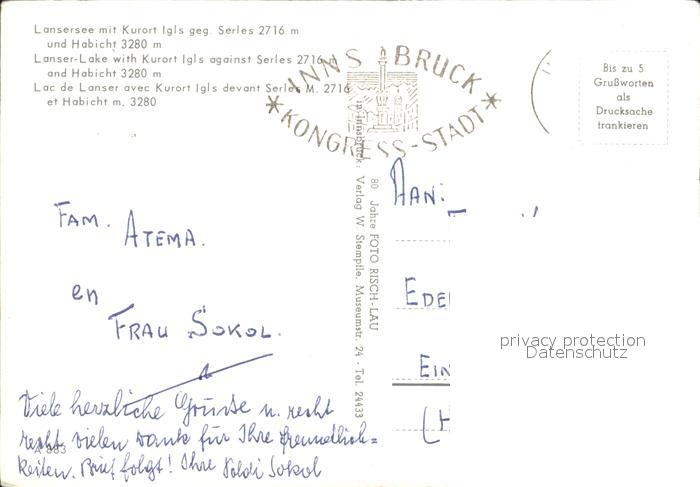 Lansersee mit Kurort Igls geg. Serles 2716 m
und Habicht 3280 m
Lanser-Lake with Kurort Igls against Serles 2716 m
and Habicht 3280 m
Lac de Lanser avec Kurort Igls devant Serles M. 2716
et Habicht m. 3280
INNSBRUCK
KONGRESS-STADT
Bis zu 5
Grußworten
als
Drucksache
frankieren
80 Jahre FOTO RISCH-LAU
in Innsbruck: Verlag W. Stempfle, Museumstr. 24 - Tel. 24433
AAN:
EDE
EIN
(H
FAM. ATEMA.
en
FRAU SOKOL.
Viele herzliche Grüsse u. recht
recht vielen Dank für Ihre freundlich=
keiten. Brief folgt! Ihre Poldi Sokol
A 883
privacy protection
Datenschutz